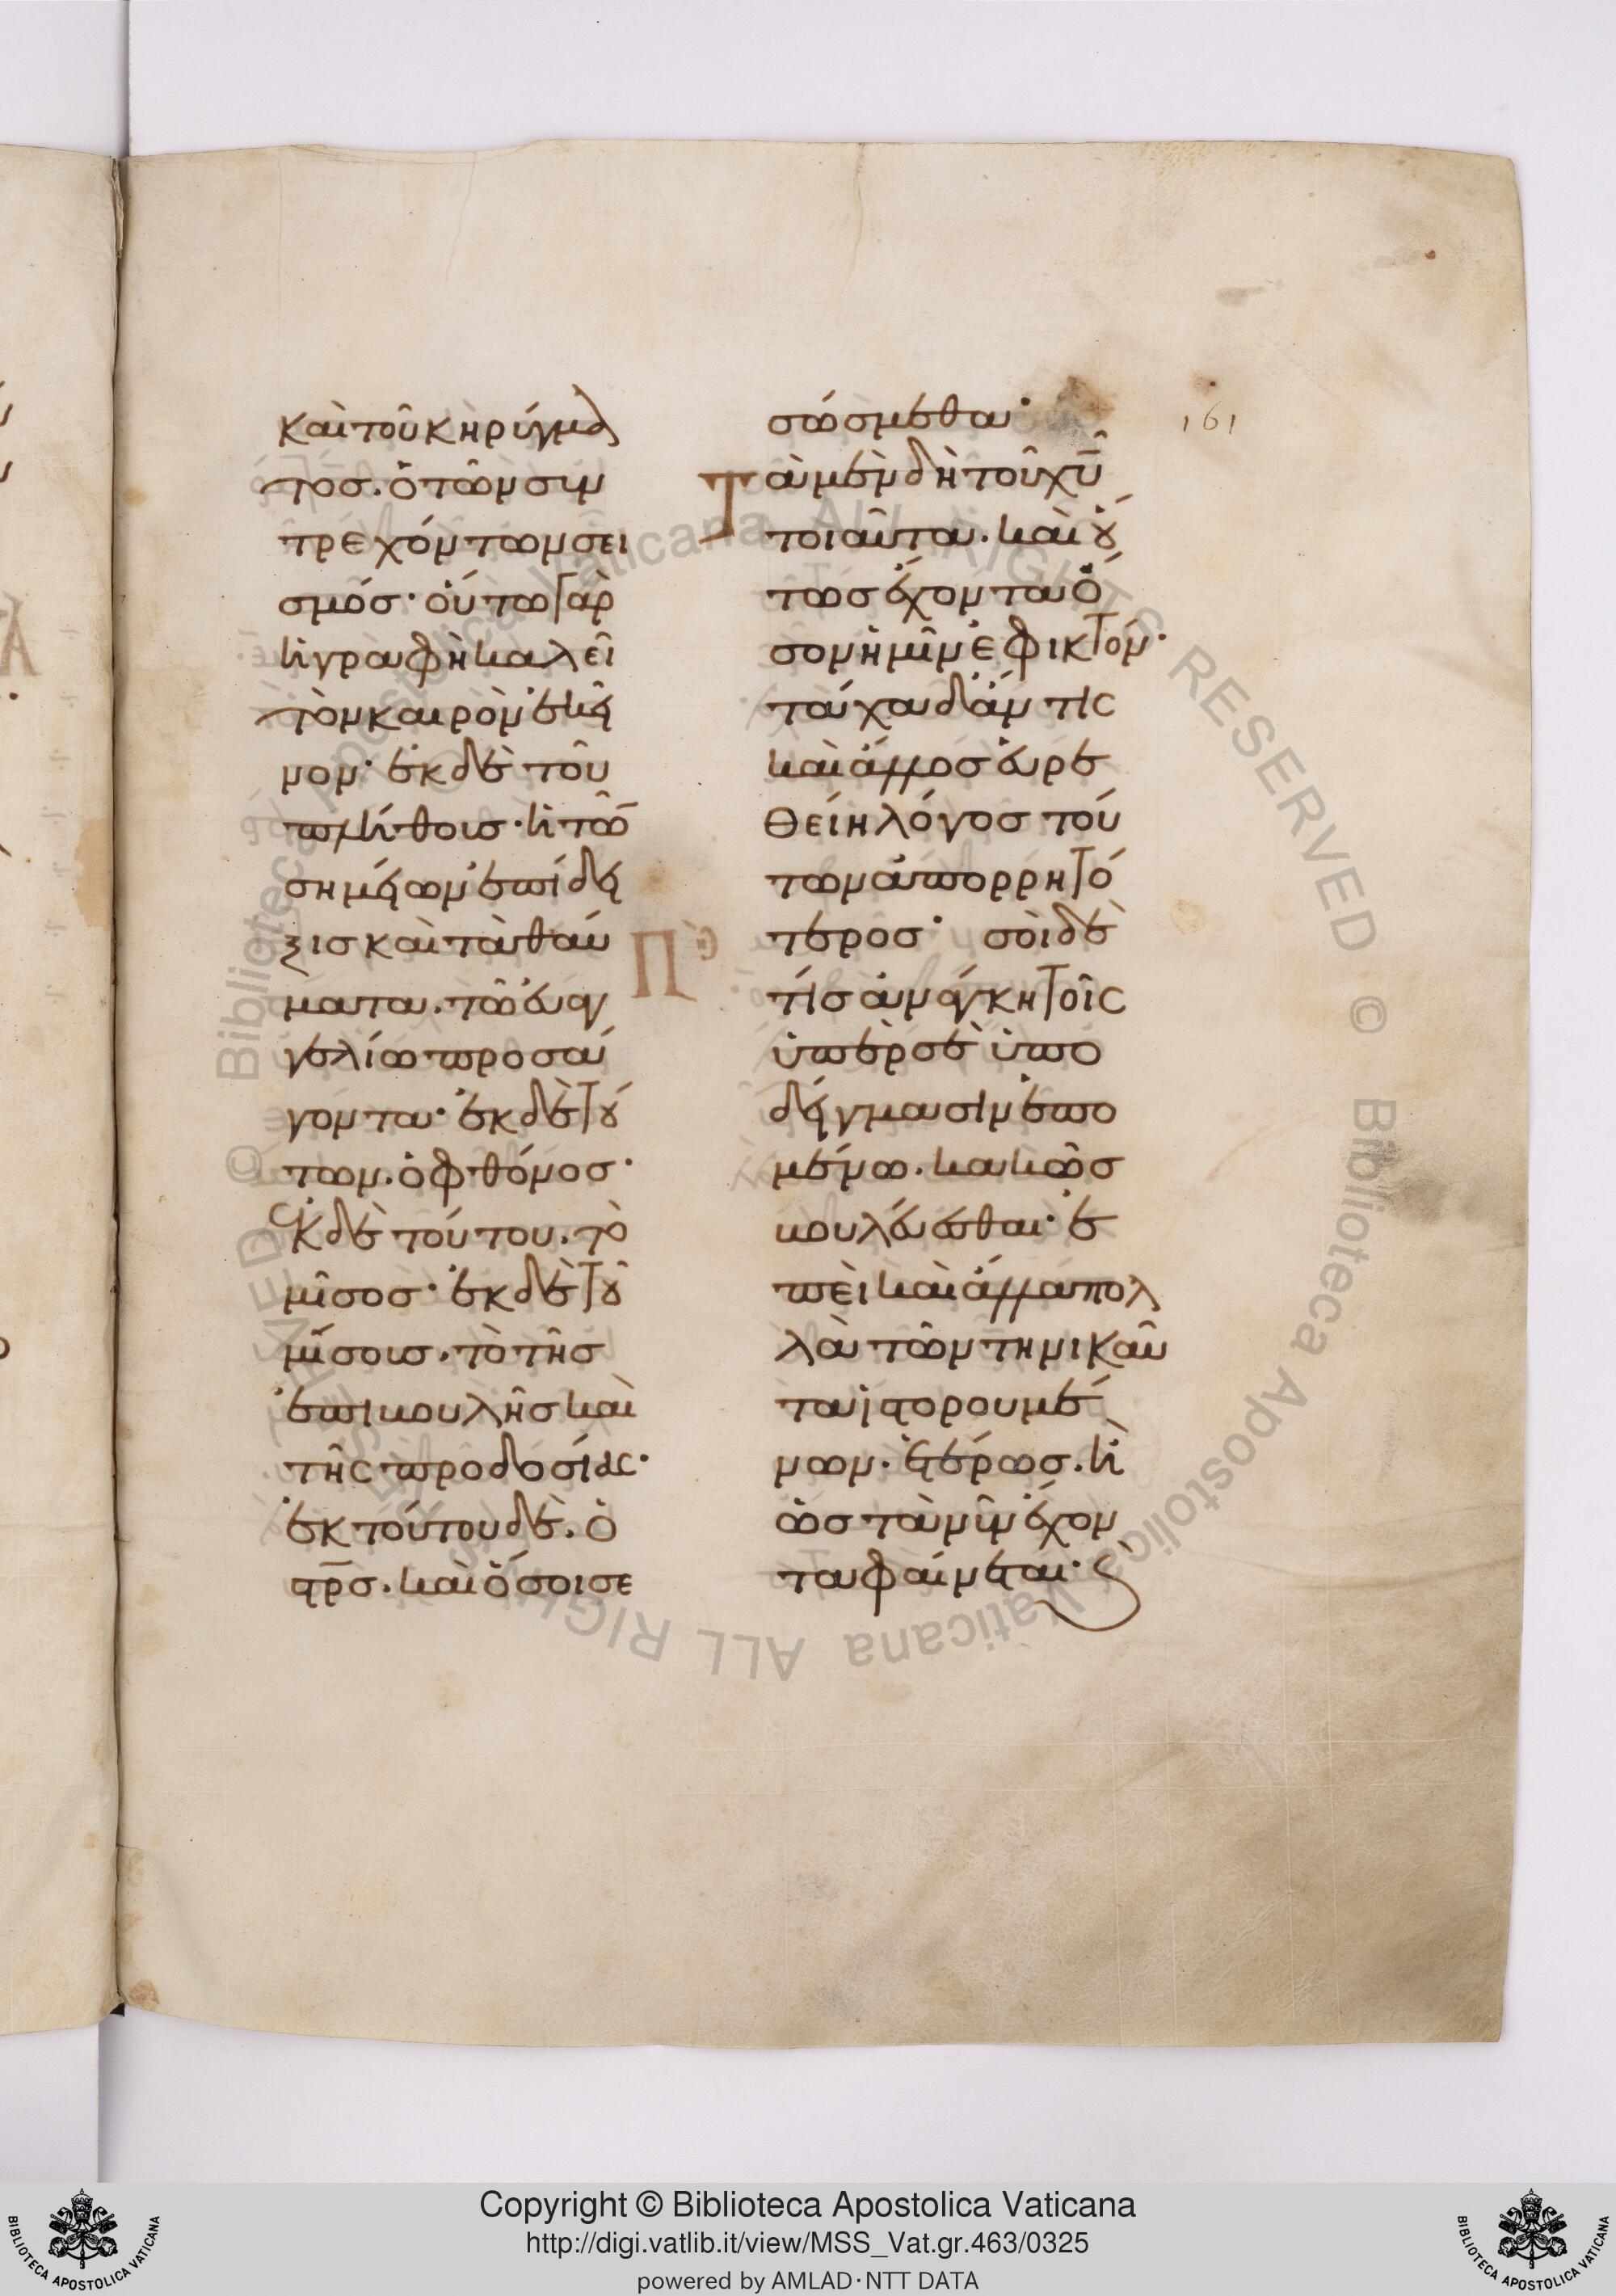 καὶ τοῦ κηρύγμα
τος. ὁ τῶν συν
τρεχόντων σει
σμός· οὕτω γὰρ
ἡ γραφὴ καλεῖ
τὸν καιρὸν ἐκεῖ
νον· ἐκ δὲ τοῦ
πλήθους· ἡ τῶ̅
σημείων ἐπίδει
ξις καὶ τὰ θαύ
ματα. τῶ εὐαγ
γελίω προσά
γονται· ἐκ δὲ τού
των. ὁ φθόνος·
Ἐκ δὲ τούτου. τὸ
μῖσος· ἐκ δὲ τοῦ
μίσους. τὸ τῆς
ἐπιβουλῆς καὶ
τῆς προδοσίας·
ἐκ τούτου δὲ. ὁ
στ̅ρ̅ς. καὶ ὅσοις ἐ
σώσμεθα·
161
Τὰ μὲν δὴ τοῦ χ̅υ̅
τοιαῦτα. καὶ οὕ
τως ἔχοντα ὅ
σον ἡμῖν ἐφικτόν·
τάχα δ' ἄν τις
καὶ ἄλλος εὑρε
θείη λόγος τού
των ἀπορρητό
τερος· σοὶ δὲ
τίς ἀνάγκη τοῖς
ὑπὲρ σὲ ὑπο
δείγμασιν ἑπο
μένω. κακῶς
βουλεύεσθαι· ἐ
πεὶ καὶ ἄλλα πολ
λὰ τῶν τηνικαῦ
τα ἱστορουμέ
νων. ἑτέρως. ἢ
ὡς τὰ νῦν ἔχον
τα φαίνεται·
Copyright © Biblioteca Apostolica Vaticana
http://digi.vatlib.it/view/MSS_Vat.gr.463/0325
powered by AMLAD·NTT DATA
BIBLIOTECA APOSTOLICA VATICANA
BIBLIOTECA APOSTOLICA VATICANA